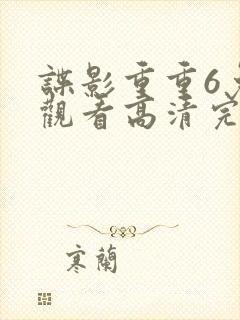 諜影重重6免
觀看高清完
寒蘭